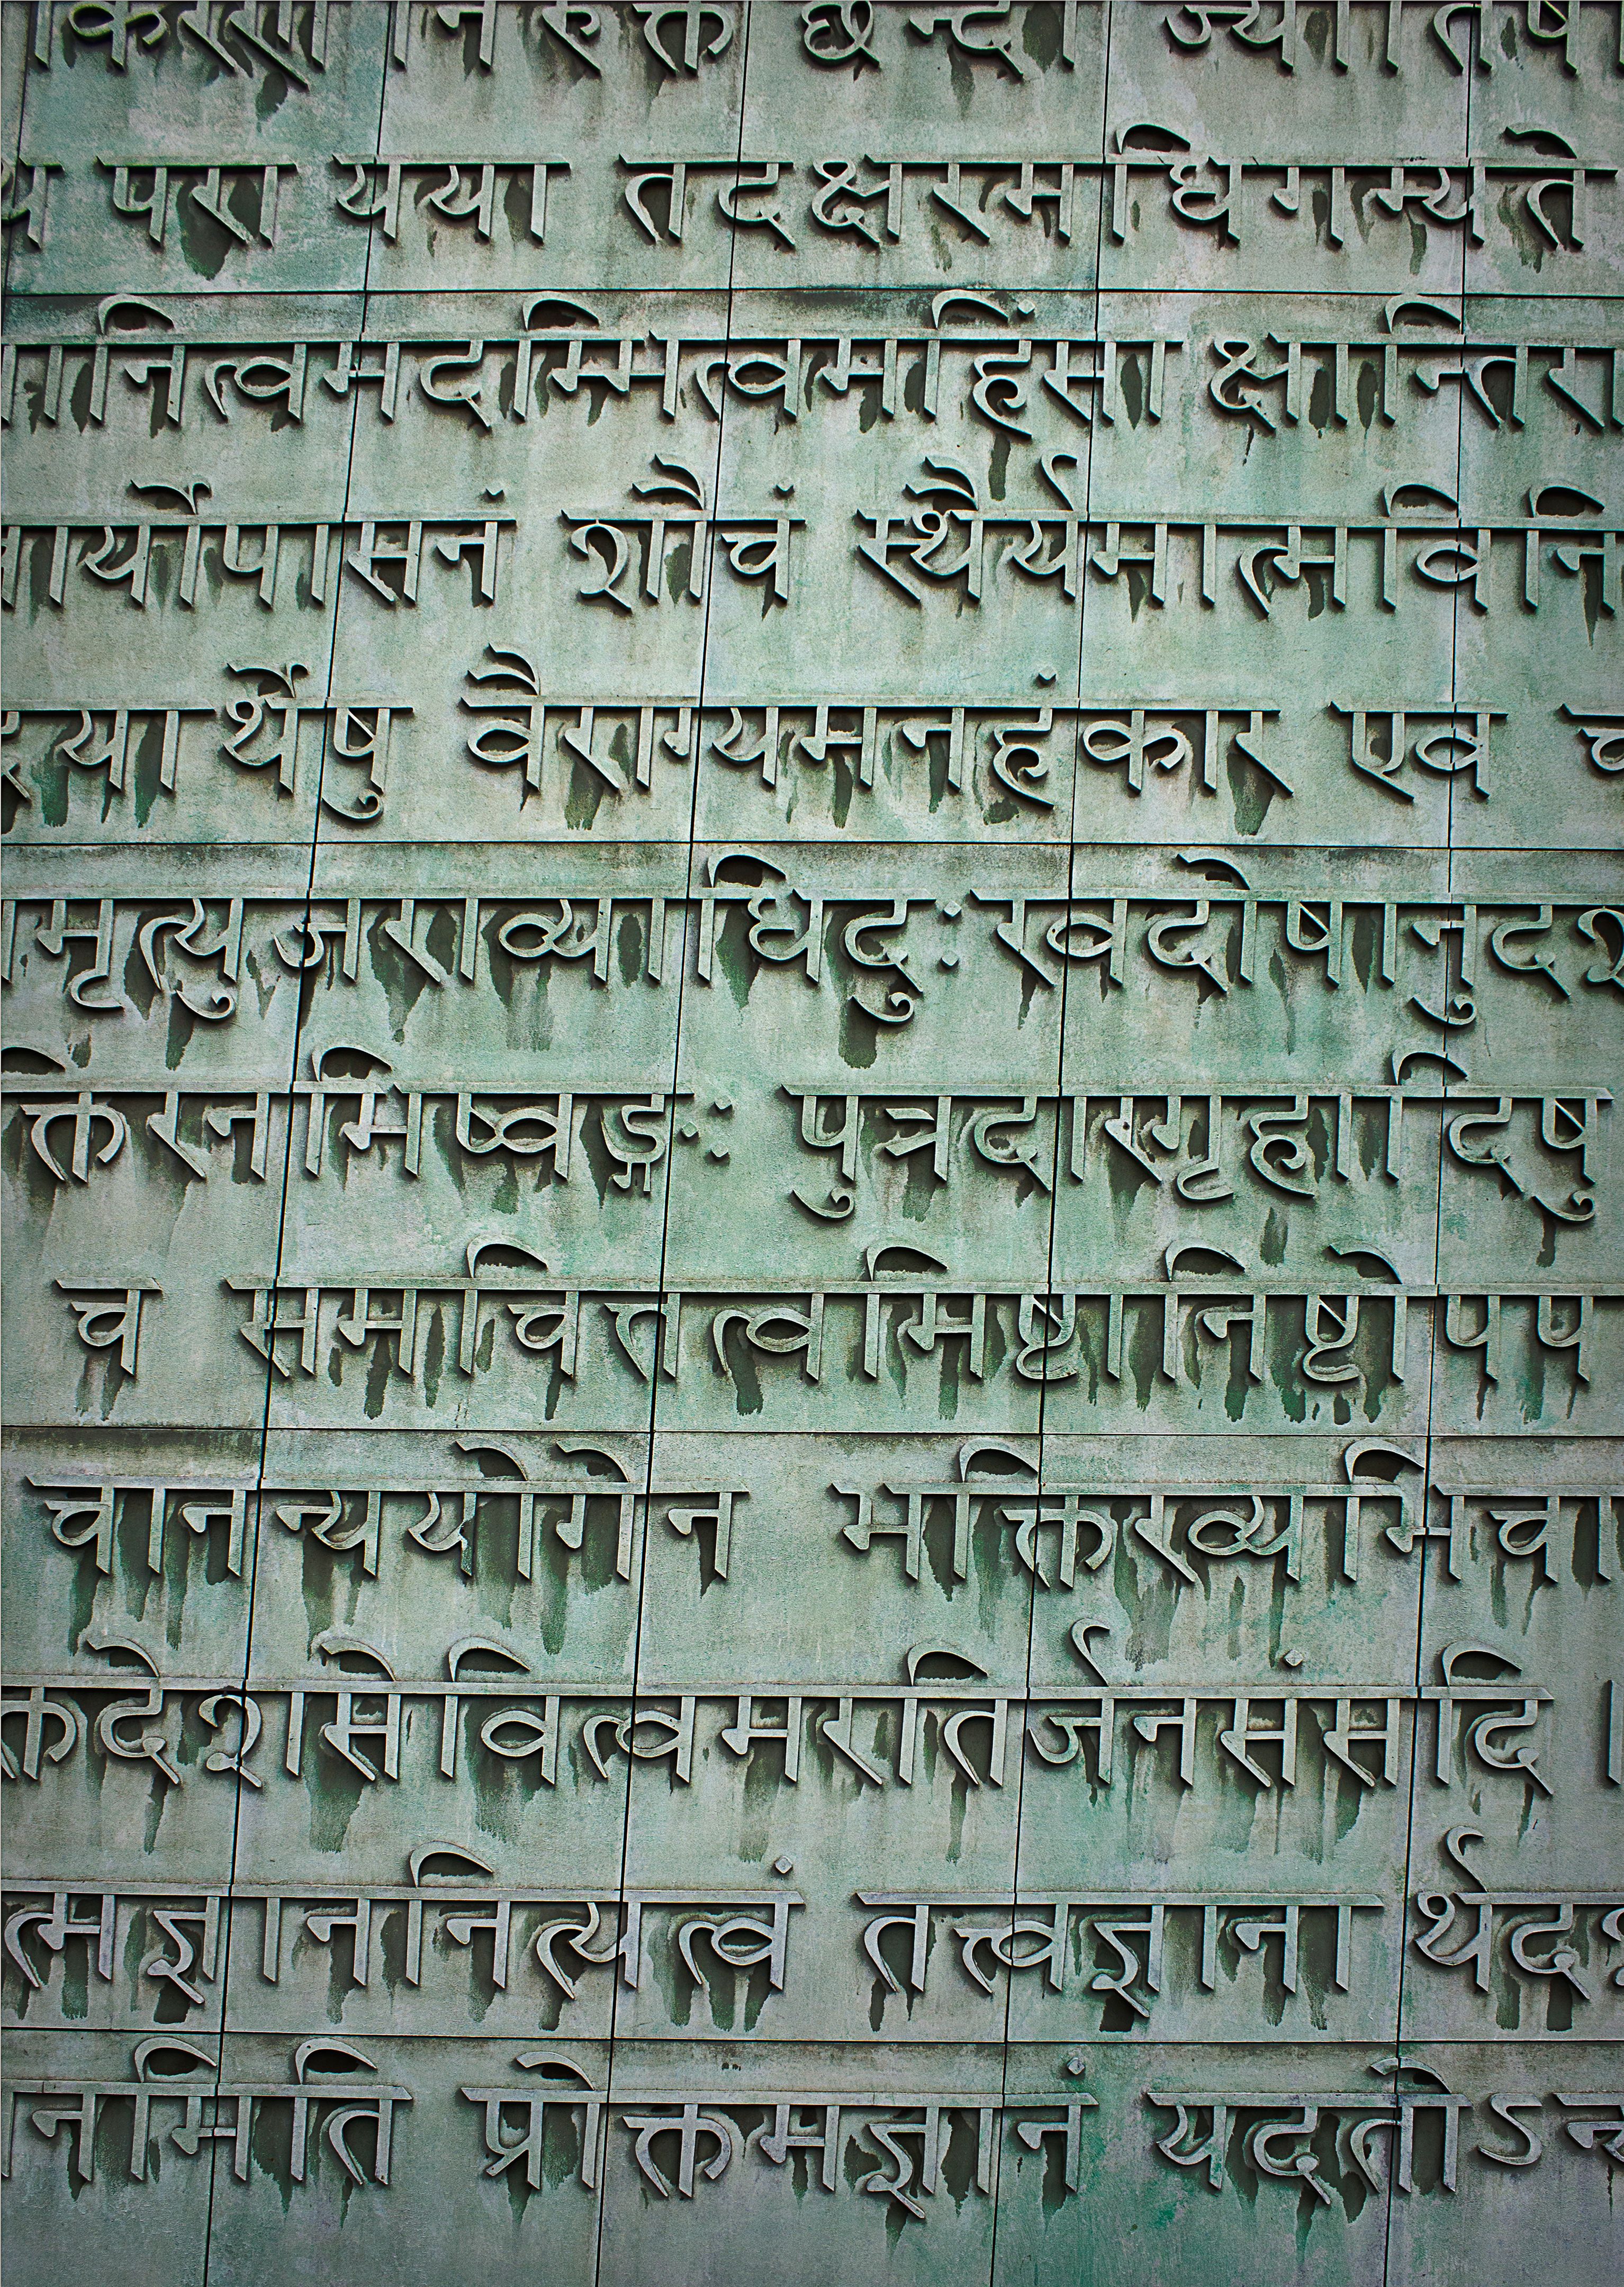 निरुक्त छन्दो ज्योतिष
परा यया तदक्षरमधिगम्यते
ानित्वमदम्भित्वमहिंसा क्षान्तिरा
ार्योपासनं शौचं स्थैर्यमात्मविनि
द्रयार्थेषु वैराग्यमनहंकार एव च
मृत्युजराव्याधिदुःखदोषानुद
क्तिरनभिष्वङ्गः पुत्रदारगृहादिषु
च समचित्तत्वमिष्टानिष्टोपप
चानन्ययोगेन भक्तिरव्यभिचा
क्तदेशसेवित्वमरतिर्जनसंसदि ।
त्मज्ञाननित्यत्वं तत्त्वज्ञानार्थद
नमिति प्रोक्तमज्ञानं यदतोऽन्य